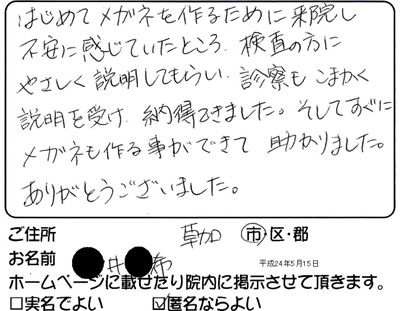 はじめてメガネを作るために来院し
不安に感じていたところ、検査の方に
やさしく説明してもらい、診察もこまかく
説明を受け、納得できました。そしてすぐに
メガネも作る事ができて助かりました。
ありがとうございました。
ご住所 草加 市 区・郡
お名前 井 希 平成24年5月15日
ホームページに載せたり院内に掲示させて頂きます。
□実名でよい ☑匿名ならよい